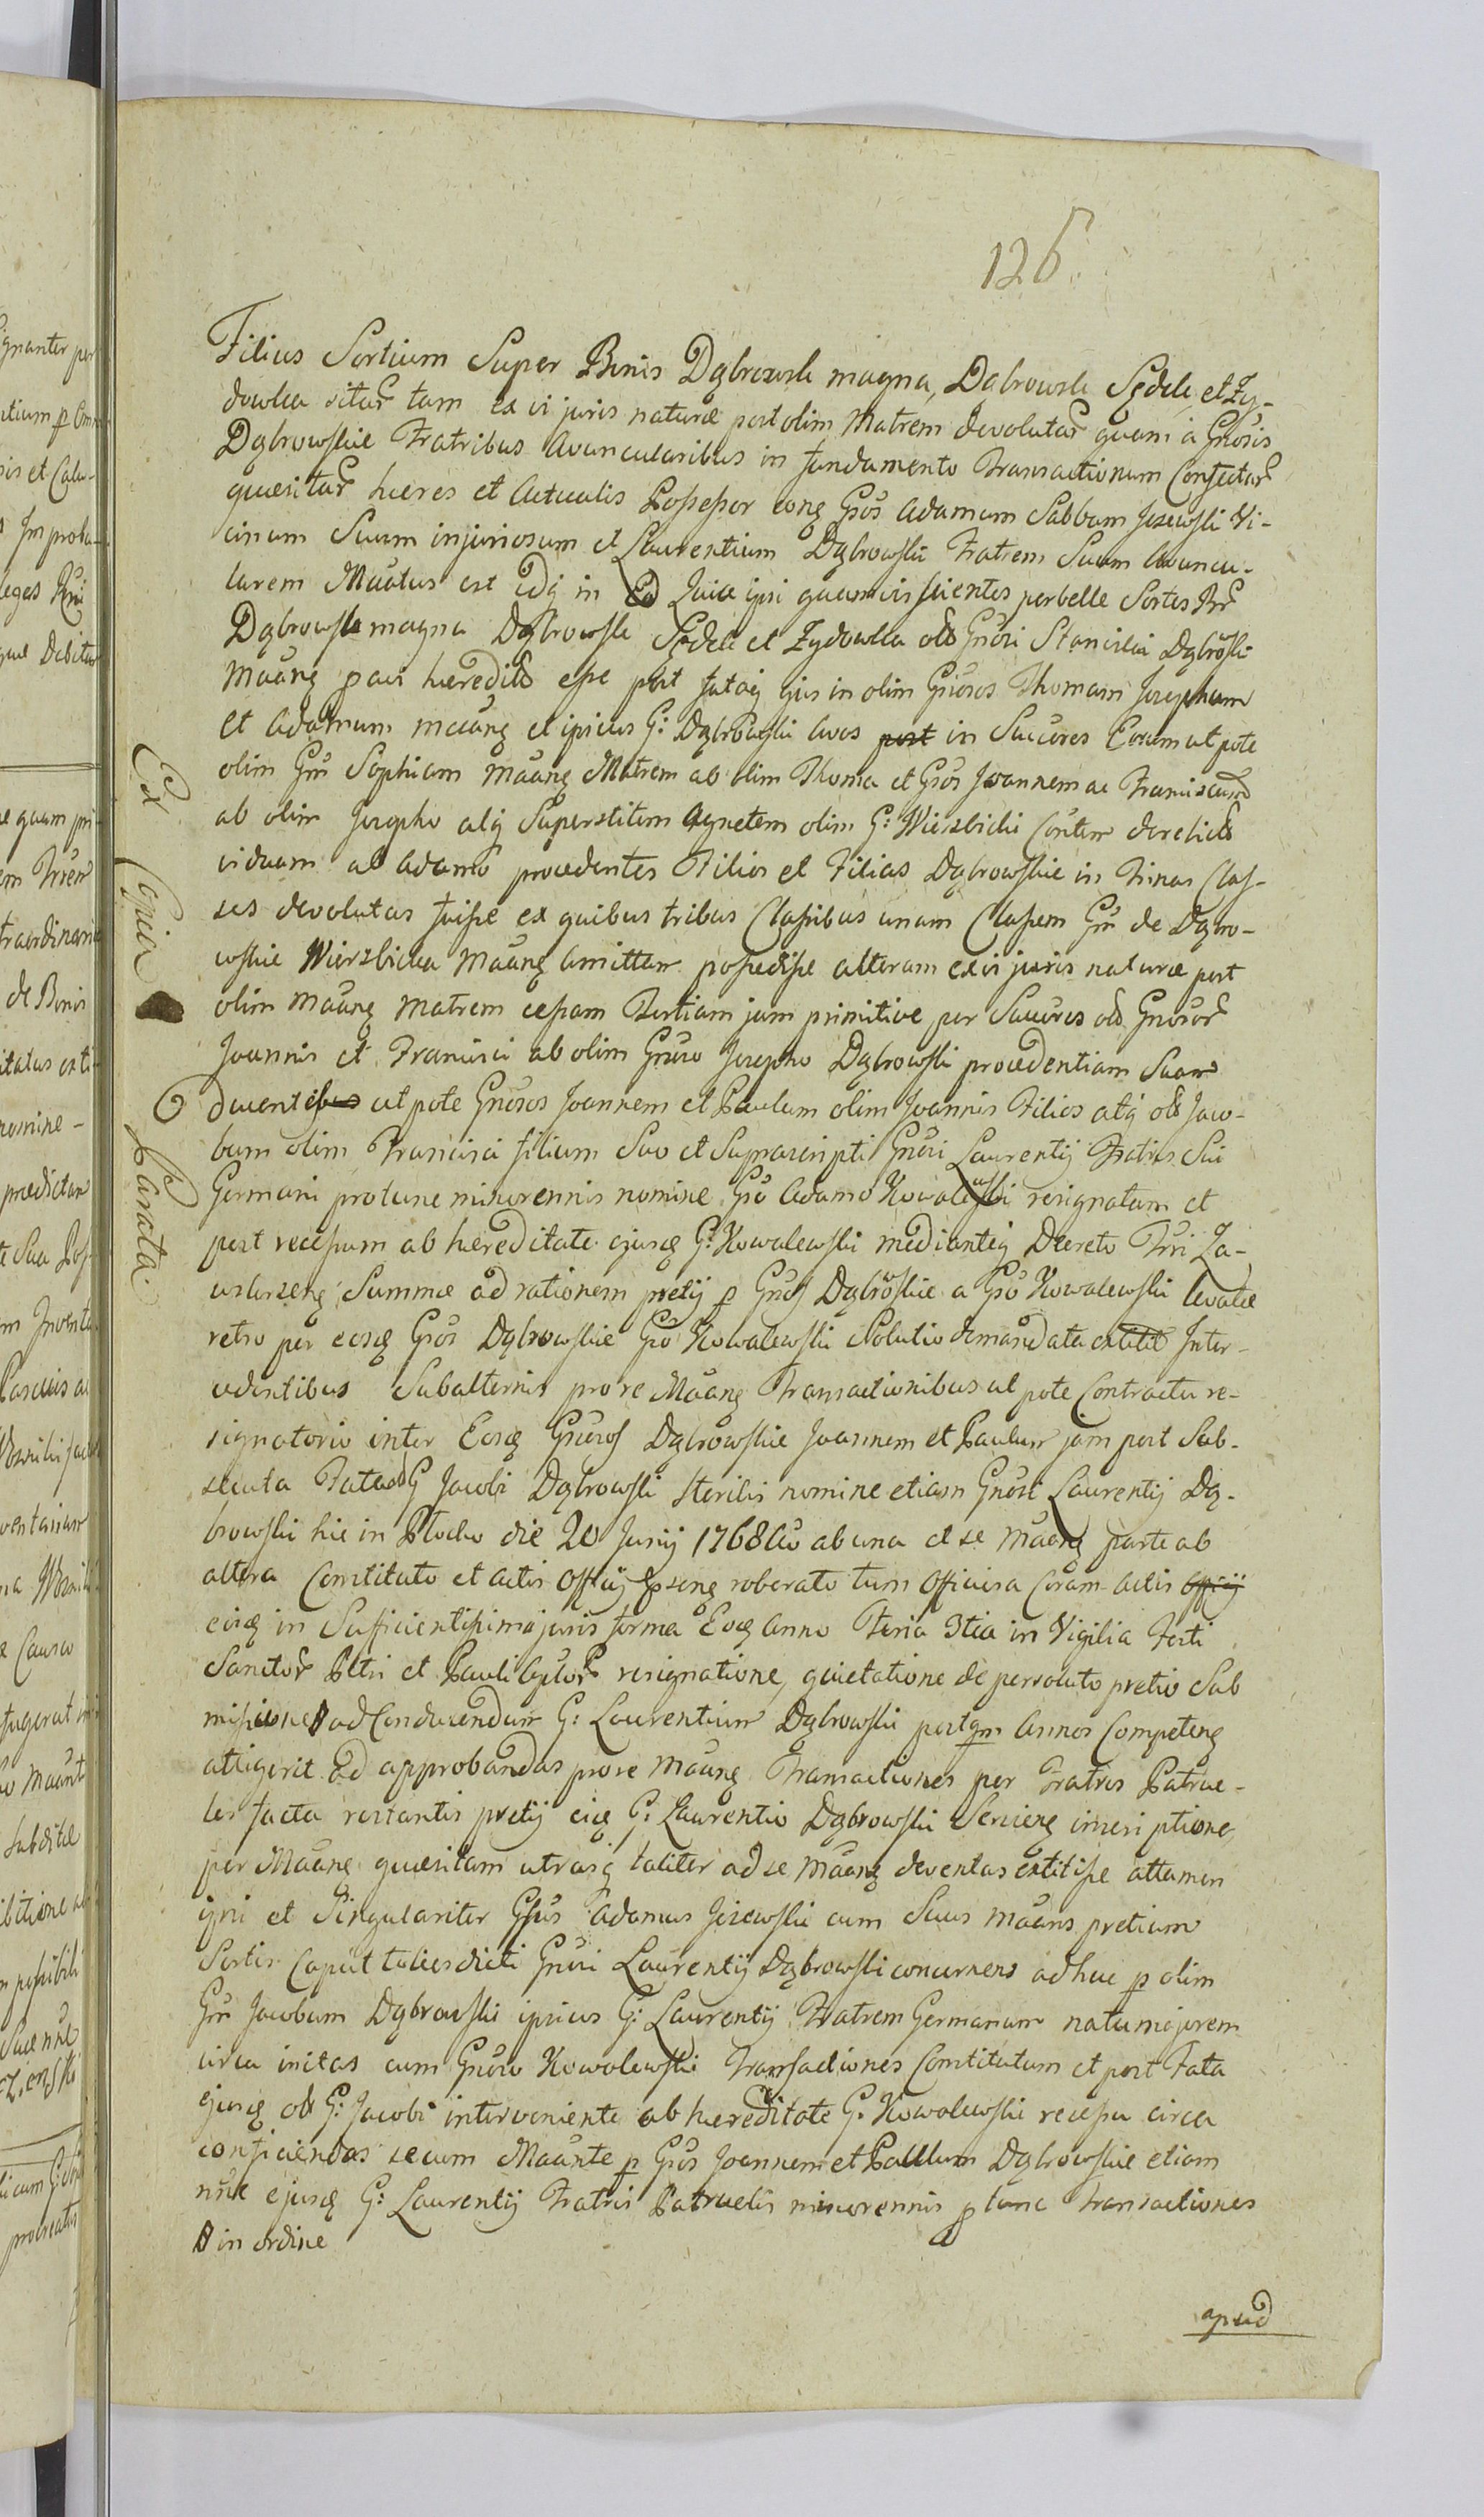 126.
Filius Sortium Super Bonis Dąbrowsk magna, Dąbrowsk Sędele et Ży-
dowka sitar tam ex vi juris naturæ post olim Matrem devolutar quam á Gnosis
Dąbrowskie Fratribus Avuncularibus in fundamento Transactionum Confectar
quæsitar hæres et Actualis Possessor eonq Gsos Adamum Sabbam Jezewski Vi-
cinum Suum injuriosum et Laurentium Dąbrowski Fratrem Suum Avuncu-
larem Maatus est idq in Eo Quia ipsi quamvis scientes perbelle Sortes Bnr
Dąbrowsk magna Dąbrowsk Sędele et Zydowka olš Gnosi Stanislai Dąbrowski
Maanq pavi hæredits esse post fataq ejus in olim Gnosos Thomam Josephum
et Adamum maanq et ipsius G: Dąbrowski Avos post in Succres Eorum ut pote
olim Gm Sophiam Maanq Matrem ab olim Thoma et Gsos Joannem ac Franciscum
ab olim Josepho atq Superstitem Agnetem olim G: Wierzbicki Contem derelictš
viduam ab Adamo procedentes Filios et Filias Dąbrowskie in Trinas Clas-
ses devolutas fuisse ex quibus tribus Classibus unam Classem Gm de Dąbro-
wskie Wierzbicka Maanq Amittam possedisse alteram ex vi juris naturæ post
olim Maanq Matrem cessam Tertiam jam primitive per Succres olš Gnosor
Joannis et Francisci ab olim Gnoso Josepho Dąbrowski procedentiam Suam
ducentibus ut pote Gnosos Joannem et Paulum olim Joannis Filios atq olš Jaco-
bum olim Francisci filium Suo et Suprascripti Gnosi Laurentij Fratris Sui
Germani protunc minorennis nomine Gso Adamo Kowalewski resignatam et
post recessum ab hæreditate ejusq G: Kowalewski mediantiq Decreto Trri Za-
wskrzenq Summæ ad rationem pretij p Gnos Dąbrowskie a Gso Kowalewski levatæ
retro per eosq Gsos Dąbrowskie Gso Kowalewski Solutio demandata extitit Inter-
cedentibus Subalternis pro re Maanq Transactionibus ut pote Contractu re-
signatorio inter Eosq Gnosos Dąbrowskie Joannem et Paulum jam post Sub-
secuta Fata olš G Jacobi Dąbrowski sterilis nomine etiam Gnosi Laurentij Dą-
browski hic in Płocko die 20 Junij 1768 Ao ab una et se Maanq parte ab
altera Constituto et actis Officij Psenq roborato tum Officiosa Coram Actis Officij
eisq in Sufficientissima juris forma Eoq Anno Feria 3tia in Vigilia Festi
Sanctor Petri et Pauli Aplor resignatione, quietatione de persoluto pretio Sub
missione ad Conducendum G: Laurentium Dąbrowski postqm Annos Competenq
attigerit Ad approbandas pro re Maanq Transactiones per Fratres Patrue-
les facta restantis pretij eiq G: Laurentio Dąbrowski Servienq inscriptione,
per Maanq quæsitam utrasq taliter ad se Maanq deventas extitisse attamen
ipsi et Singulariter Gsus Adamus Jezewski cum Suus Maans pretium
Sortis Caput totiesdicti Gnosi Laurentij Dąbrowski concernens adhuc p olim
Gm Jacobum Dąbrowski ipsius G: Laurentij Fratrem Germanum natu majorem
circa initas cum Gnoso Kowalewski Transactiones Constitutum et post Fata
ejusq olš G: Jacobi interveniente ab hæreditate G: Kowalewski recessu circa
conficiendas secum Maante p Gsos Joannem et Paulum Dąbrowskie etiam
nne ejusq G: Laurentij Fratris Patruelis minorennis p tunc Transactiones
in ordine
apud
Ex Copia
Parata